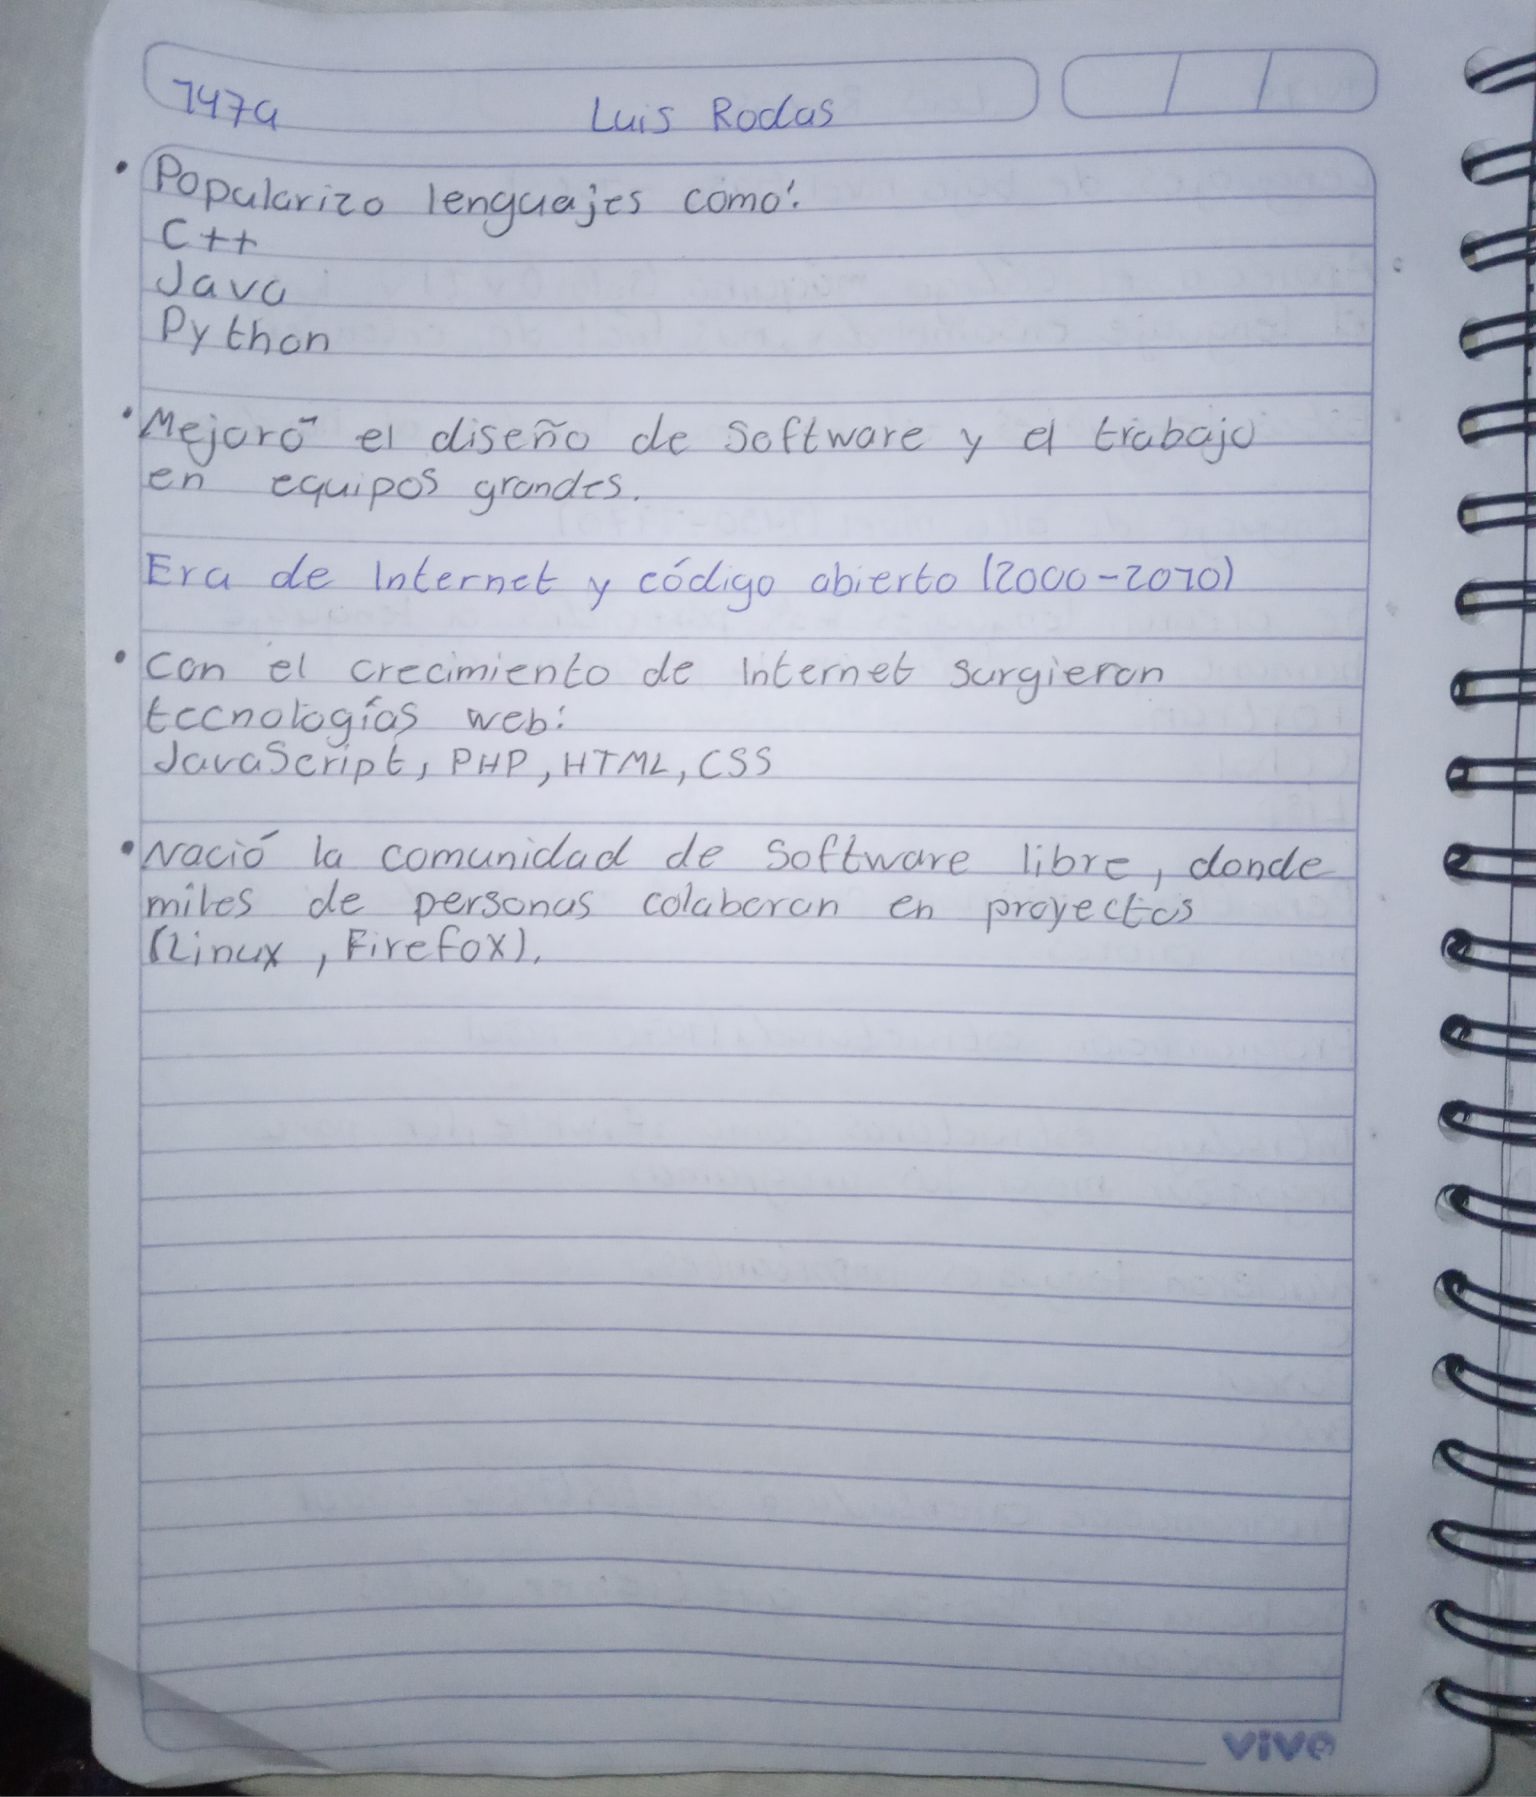 7474 Luis Rodas
• Popularizo lenguajes como:
C++
Java
Python
• Mejoró el diseño de Software y el trabajo
en equipos grandes.
Era de Internet y código abierto (2000-2010)
• Con el crecimiento de Internet surgieron
tecnologías web:
JavaScript, PHP, HTML, CSS
• Nació la comunidad de Software libre, donde
miles de personas colaboran en proyectos
(Linux, Firefox).
vivo